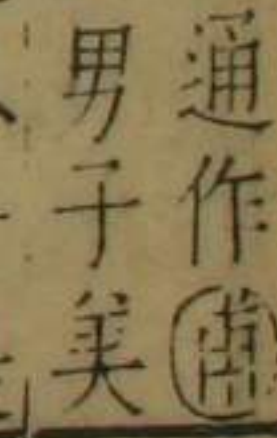 通作甫
男子美